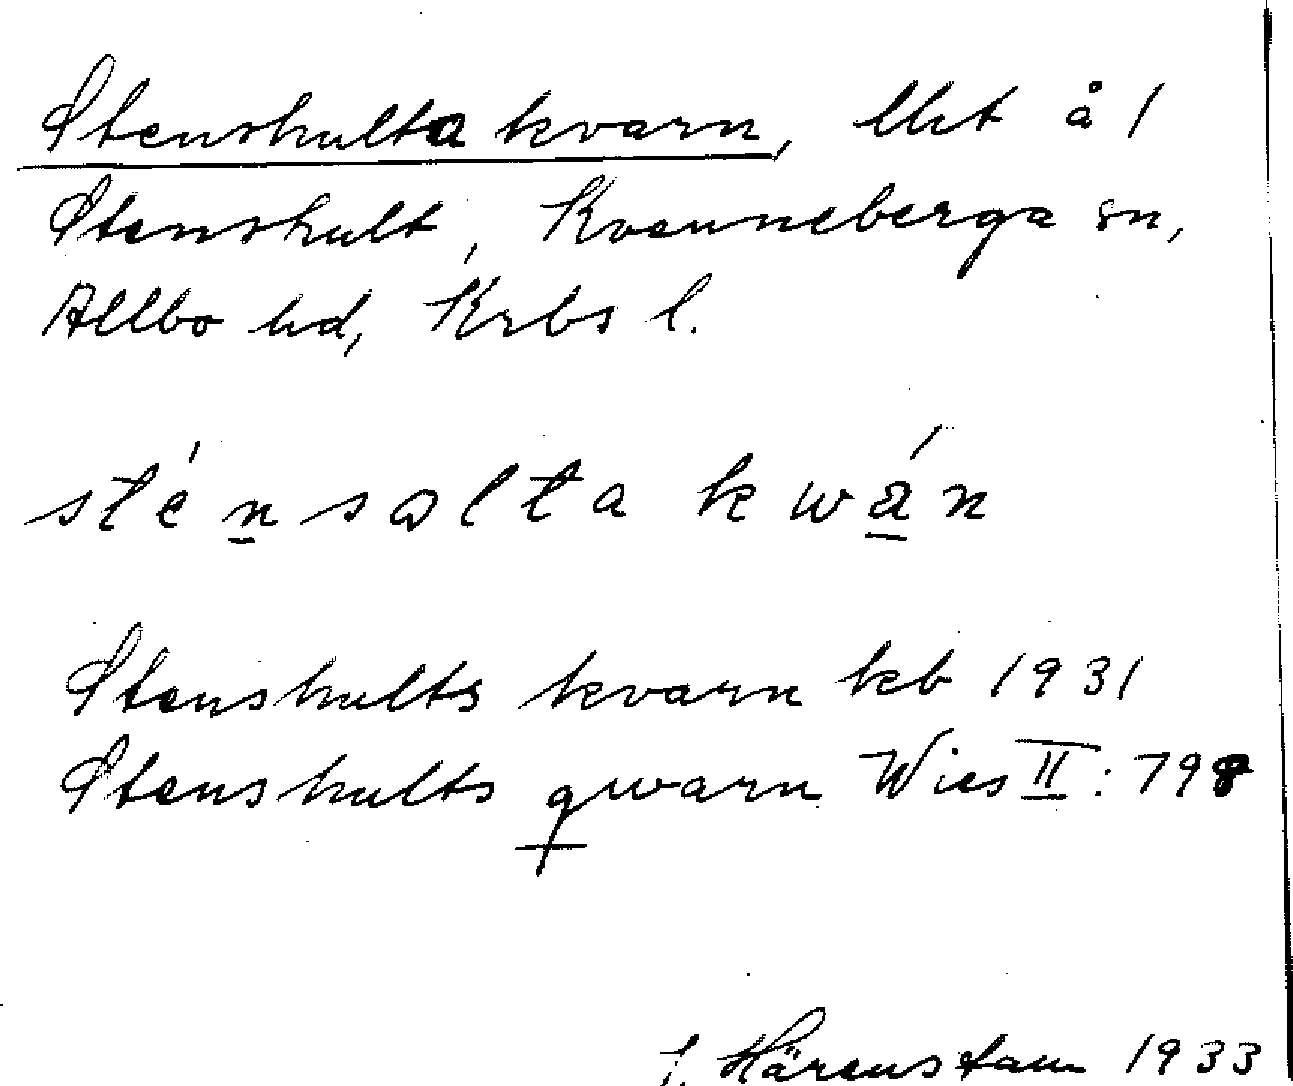 Stenshulta kvarn, lht å 1
Stenshult, Kvenneberga sn,
Allbo hd, Krbs l.
sténsolta kwán
Stenshults kvarn kb 1931
Stenshults qwarn Wies II: 798
J. Härenstam 1933